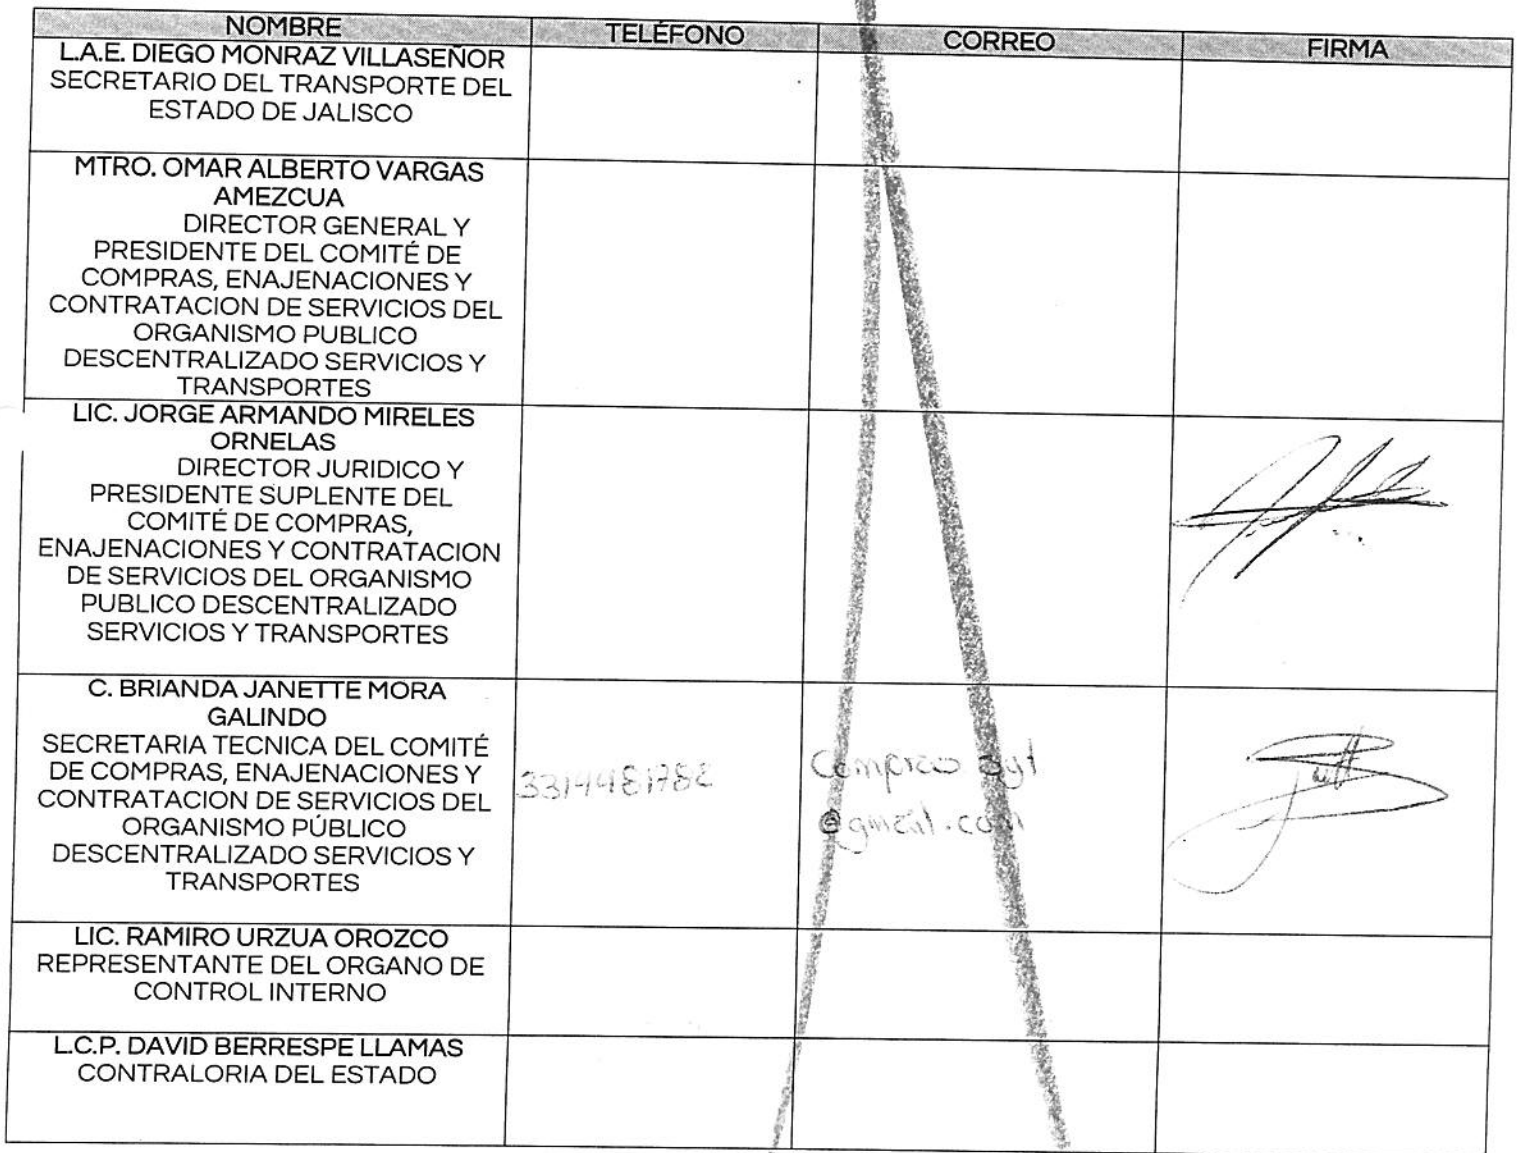 NOMBRE TELÉFONO CORREO FIRMA
L.A.E. DIEGO MONRAZ VILLASEÑOR
SECRETARIO DEL TRANSPORTE DEL
ESTADO DE JALISCO
MTRO. OMAR ALBERTO VARGAS
AMEZCUA
DIRECTOR GENERAL Y
PRESIDENTE DEL COMITÉ DE
COMPRAS, ENAJENACIONES Y
CONTRATACION DE SERVICIOS DEL
ORGANISMO PUBLICO
DESCENTRALIZADO SERVICIOS Y
TRANSPORTES
LIC. JORGE ARMANDO MIRELES
ORNELAS
DIRECTOR JURIDICO Y
PRESIDENTE SUPLENTE DEL
COMITÉ DE COMPRAS,
ENAJENACIONES Y CONTRATACION
DE SERVICIOS DEL ORGANISMO
PUBLICO DESCENTRALIZADO
SERVICIOS Y TRANSPORTES
C. BRIANDA JANETTE MORA
GALINDO
SECRETARIA TECNICA DEL COMITÉ
DE COMPRAS, ENAJENACIONES Y
CONTRATACION DE SERVICIOS DEL
ORGANISMO PÚBLICO
DESCENTRALIZADO SERVICIOS Y
TRANSPORTES
@gmail.com
LIC. RAMIRO URZUA OROZCO
REPRESENTANTE DEL ORGANO DE
CONTROL INTERNO
L.C.P. DAVID BERRESPE LLAMAS
CONTRALORIA DEL ESTADO